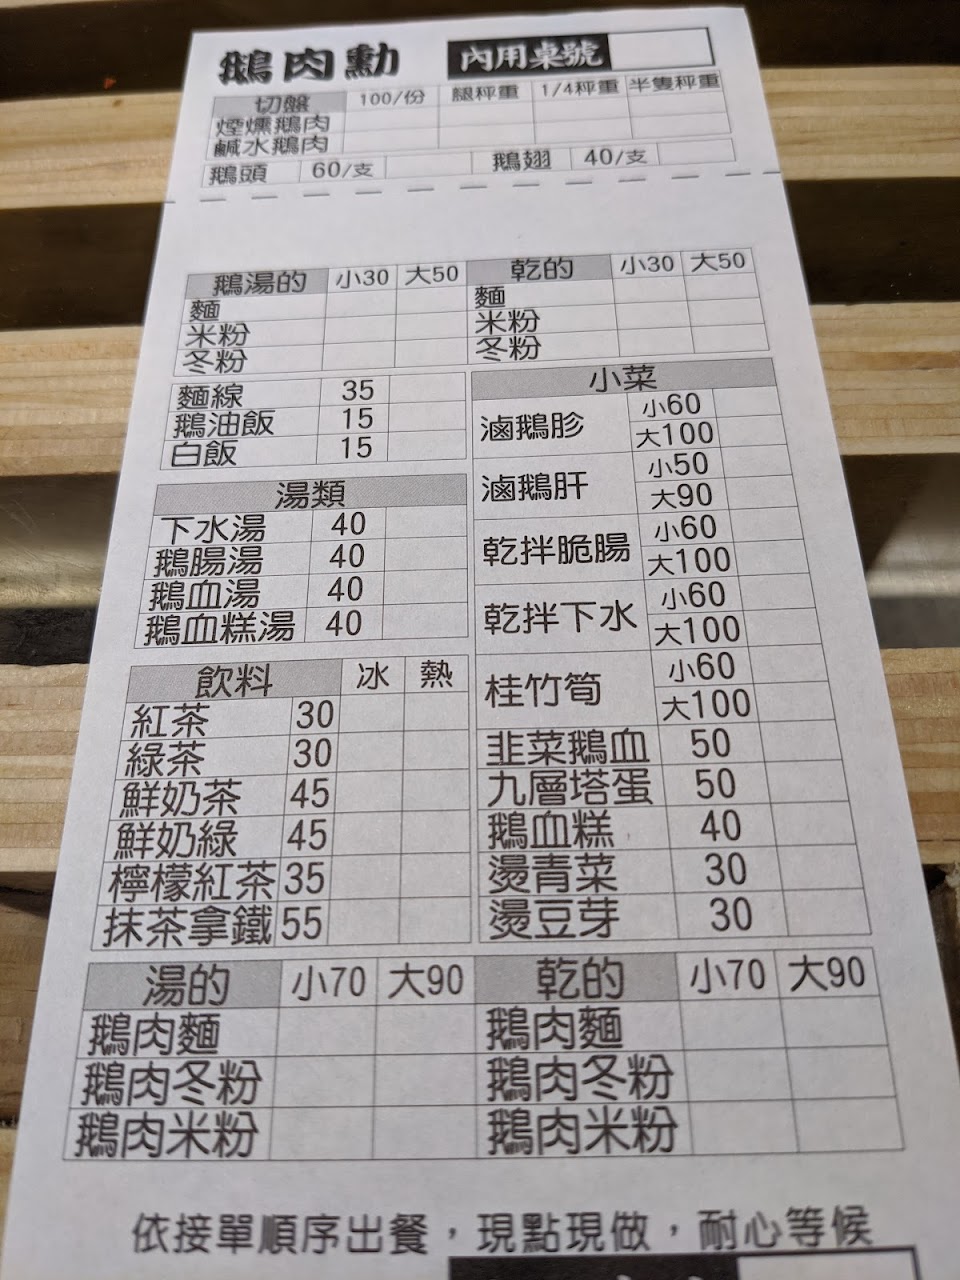 鵝肉勳 內用桌號
切盤 100/份 腿秤重 1/4秤重 半隻秤重
煙燻鵝肉
鹹水鵝肉
鵝頭 60/支 鵝翅 40/支
鵝湯的 小30 大50
麵
米粉
冬粉
麵線 35
鵝油飯 15
白飯 15
湯類
下水湯 40
鵝腸湯 40
鵝血湯 40
鵝血糕湯 40
飲料 冰 熱
紅茶 30
綠茶 30
鮮奶茶 45
鮮奶綠 45
檸檬紅茶 35
抹茶拿鐵 55
乾的 小30 大50
麵
米粉
冬粉
小菜
滷鵝胗 小60
大100
滷鵝肝 小50
大90
乾拌脆腸 小60
大100
乾拌下水 小60
大100
桂竹筍 小60
大100
韭菜鵝血 50
九層塔蛋 50
鵝血糕 40
燙青菜 30
燙豆芽 30
湯的 小70 大90
鵝肉麵
鵝肉冬粉
鵝肉米粉
乾的 小70 大90
鵝肉麵
鵝肉冬粉
鵝肉米粉
依接單順序出餐，現點現做，耐心等候